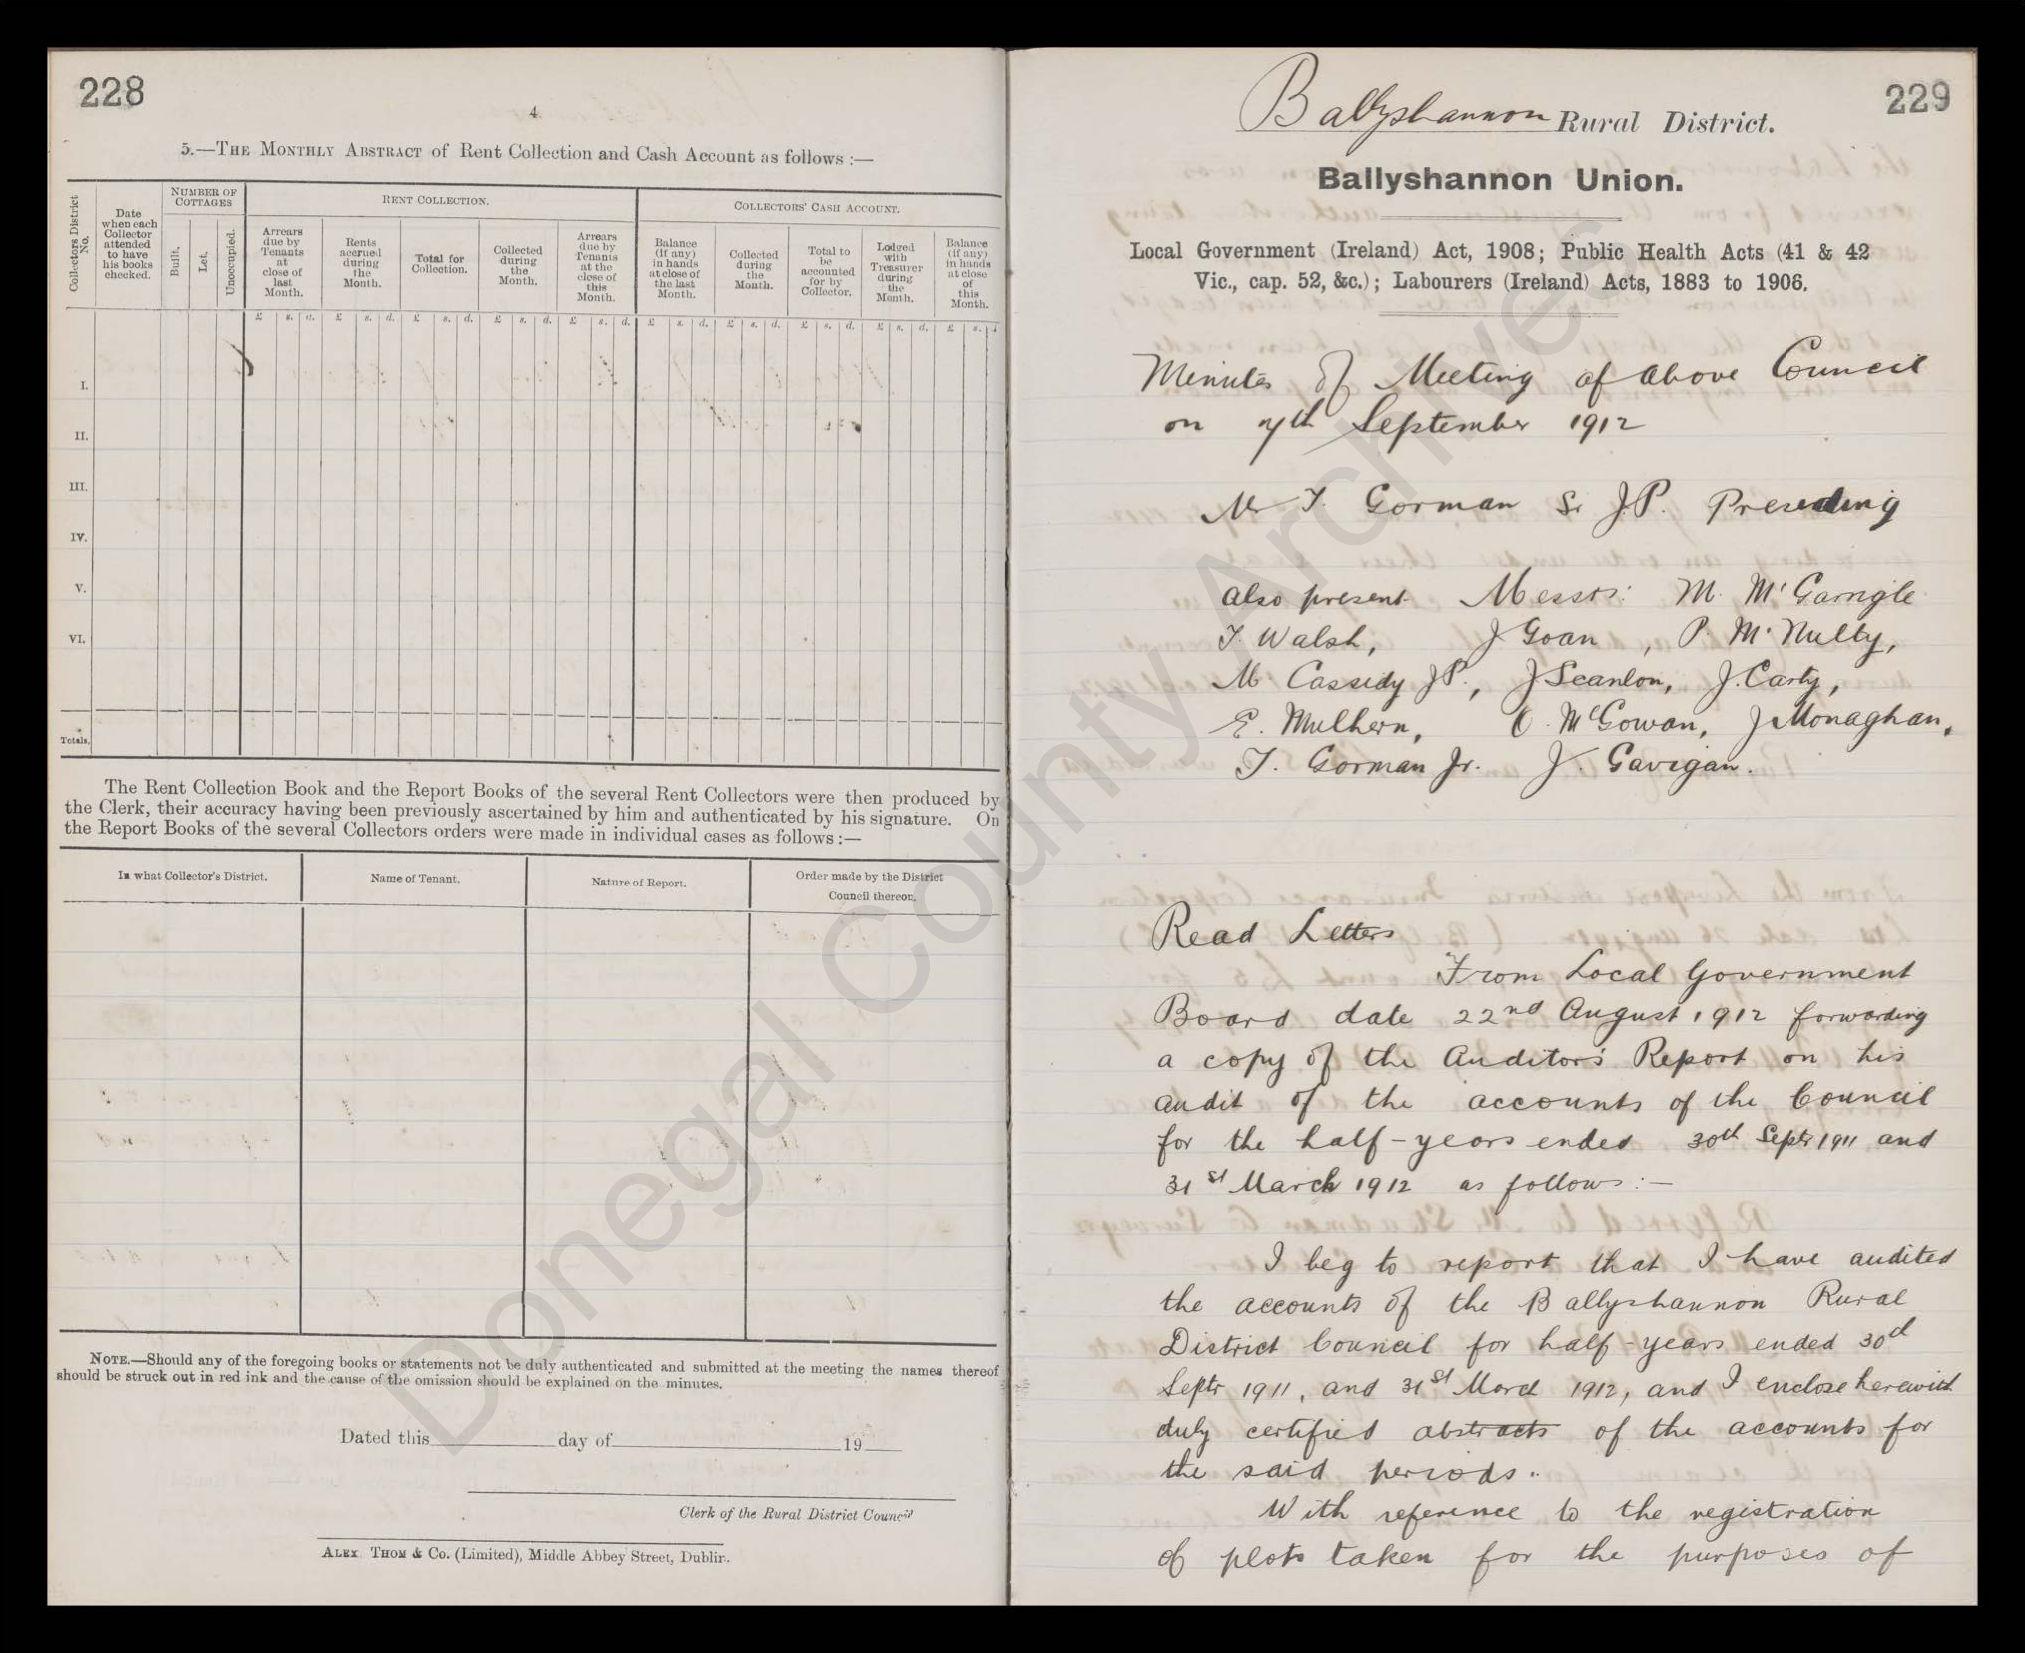 228
4
5.—THE MONTHLY ABSTRACT of Rent Collection and Cash Account as follows :—
Collectors District No.
Date when each Collector attended to have his books checked.
NUMBER OF COTTAGES
Built.
Let.
Unoccupied.
RENT COLLECTION.
Arrears due by Tenants at close of last Month.
Rents accrued during the Month.
Total for Collection.
Collected during the Month.
Arrears due by Tenants at the close of this Month.
COLLECTORS' CASH ACCOUNT.
Balance (if any) in hands at close of the last Month.
Collected during the Month.
Total to be accounted for by Collector.
Lodged with Treasurer during the Month.
Balance (if any) in hands at close of this Month.
£ s. d. £ s. d. £ s. d. £ s. d. £ s. d. £ s. d. £ s. d. £ s. d. £ s. d. £ s. d
I.
II.
III.
IV.
V.
VI.
Totals.
The Rent Collection Book and the Report Books of the several Rent Collectors were then produced by
the Clerk, their accuracy having been previously ascertained by him and authenticated by his signature. On
the Report Books of the several Collectors orders were made in individual cases as follows :—
In what Collector's District.
Name of Tenant.
Nature of Report.
Order made by the District
Council thereon.
NOTE.—Should any of the foregoing books or statements not be duly authenticated and submitted at the meeting the names thereof
should be struck out in red ink and the cause of the omission should be explained on the minutes.
Dated this day of 19
Clerk of the Rural District Council
ALEX THOM & Co. (Limited), Middle Abbey Street, Dublin.
229
Ballyshannon Rural District.
Ballyshannon Union.
Local Government (Ireland) Act, 1908; Public Health Acts (41 & 42
Vic., cap. 52, &c.); Labourers (Ireland) Acts, 1883 to 1906.
Minutes of Meeting of above Council
on 7th September 1912
Mr T. Gorman Sr J.P. Presiding
also present Messrs: M. McGarrigle
T. Walsh, J Goan, P. McNulty,
M Cassidy J.P., J Scanlon, J. Carty,
E. Mulhern, O. McGowan, J Monaghan,
T. Gorman Jr. J. Gavigan.
Read Letters
From Local Government
Board date 22nd August 1912 forwarding
a copy of the Auditor's Report on his
audit of the accounts of the Council
for the half-years ended 30th Septr 1911 and
31st March 1912 as follows:—
I beg to report that I have audited
the accounts of the Ballyshannon Rural
District Council for half-years ended 30th
Septr 1911, and 31st March 1912, and I enclose herewith
duly certified abstracts of the accounts for
the said periods.
With reference to the registration
of plots taken for the purposes of
Donegal County Archives